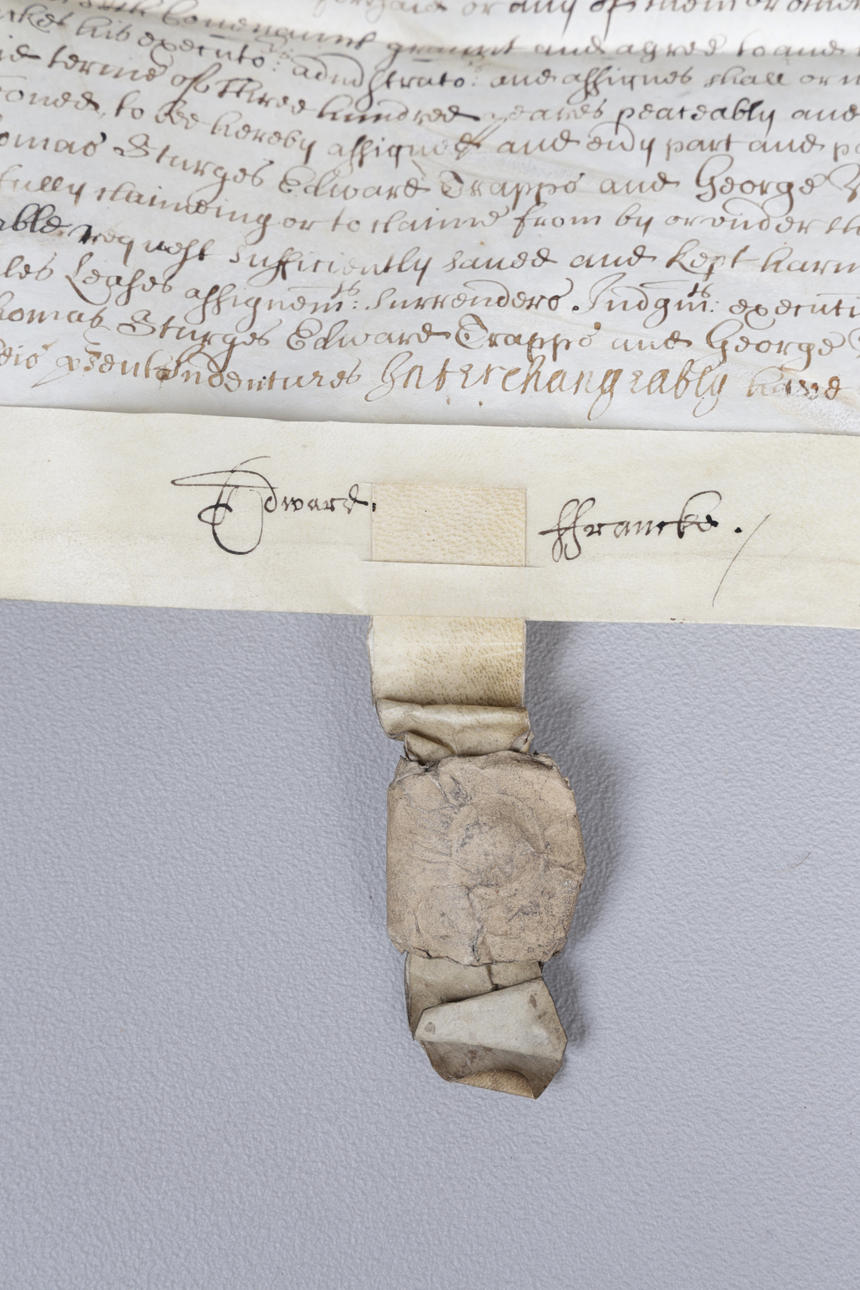 or any of them or
Covenaunt graunt and agree to and
his executo: adm̃strato: and assignes shall or
terme of Three hundred yeares peaceably and
to be hereby assigned and ev̄y part and
Thomas Sturges Edward Trapps and George
fully claimeing or to claime from by or vnder
request sufficiently saued and kept harm
Leases assignemts: surrenders Judgmts: executi
Thomas Sturges Edward Trapps and George
p̱sent Indentures Interchangeably have
Edward ffrancke.